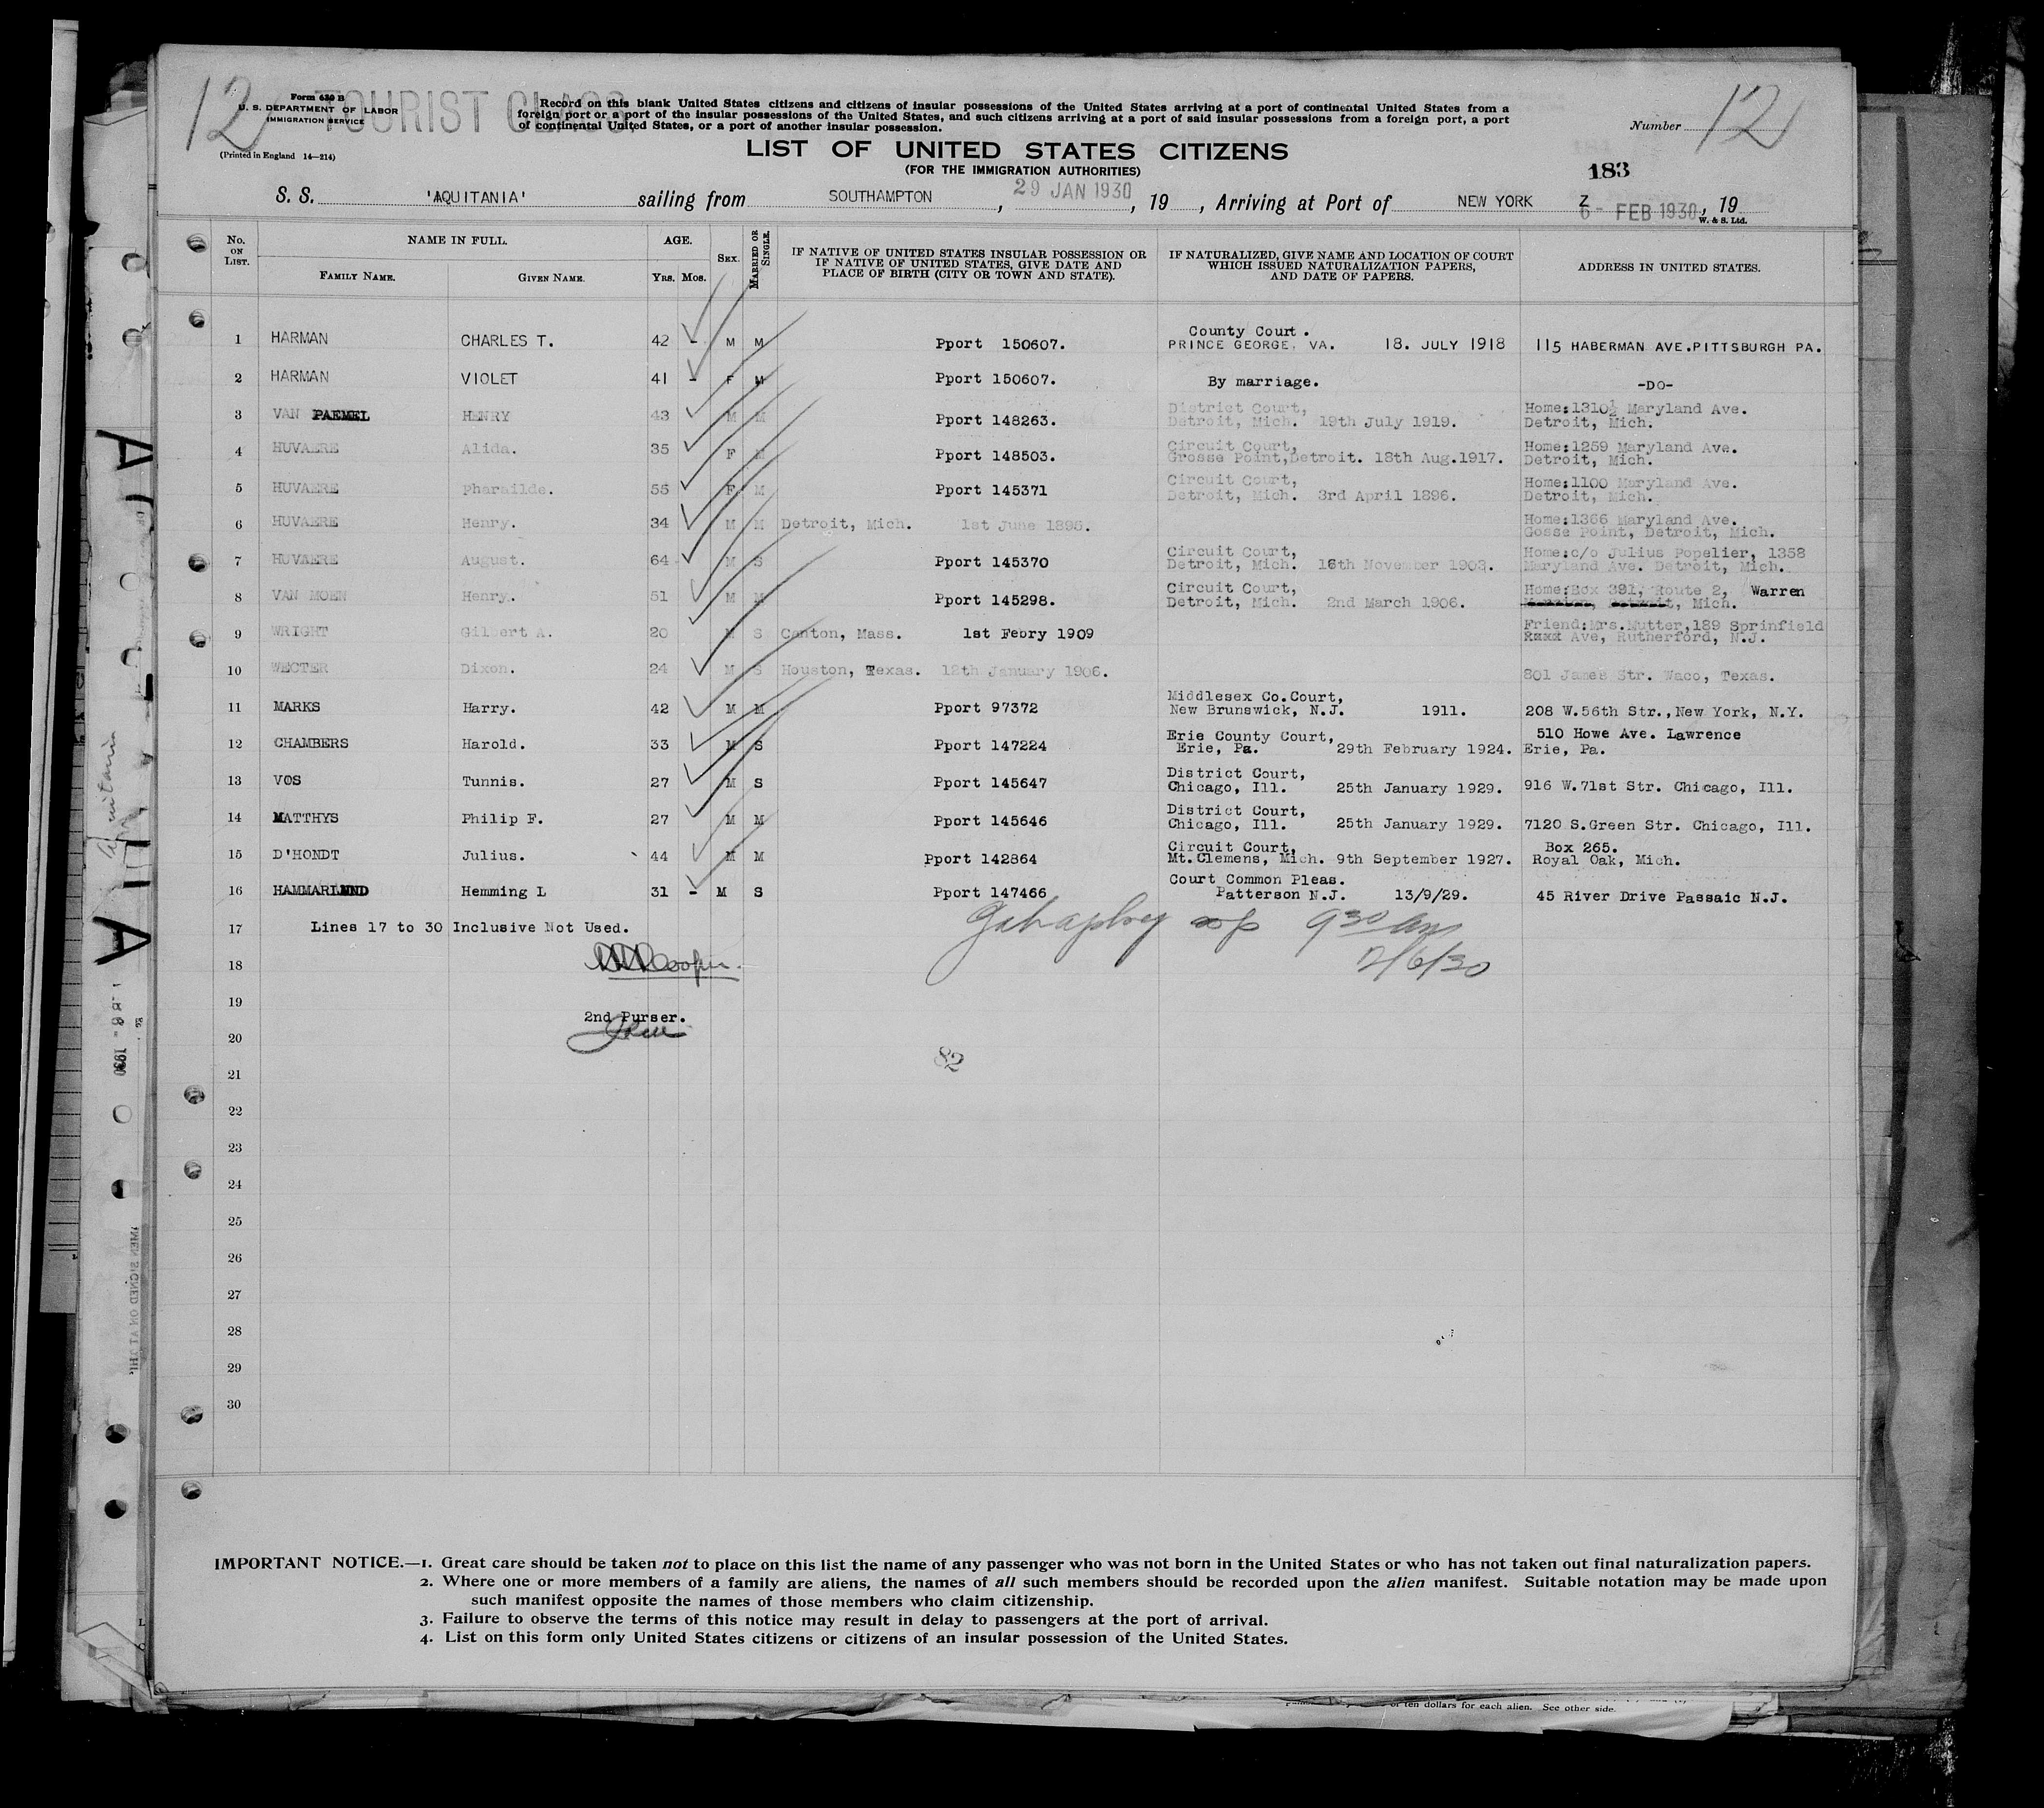 12 TOURIST CLASS 12
Form 630 B
U. S. DEPARTMENT OF LABOR
IMMIGRATION SERVICE
(Printed in England 14—214)
Record on this blank United States citizens and citizens of insular possessions of the United States arriving at a port of continental United States from a
foreign port or a port of the insular possessions of the United States, and such citizens arriving at a port of said insular possessions from a foreign port, a port
of continental United States, or a port of another insular possession.
Number
LIST OF UNITED STATES CITIZENS
(FOR THE IMMIGRATION AUTHORITIES)
183
S. S. 'AQUITANIA' sailing from SOUTHAMPTON, 29 JAN 1930, 19 , Arriving at Port of NEW YORK Z 6- FEB 1930, 19
W. & S. Ltd.
No. ON LIST. NAME IN FULL. AGE. SEX. MARRIED OR SINGLE. IF NATIVE OF UNITED STATES INSULAR POSSESSION OR IF NATIVE OF UNITED STATES, GIVE DATE AND PLACE OF BIRTH (CITY OR TOWN AND STATE). IF NATURALIZED, GIVE NAME AND LOCATION OF COURT WHICH ISSUED NATURALIZATION PAPERS, AND DATE OF PAPERS. ADDRESS IN UNITED STATES.
FAMILY NAME. GIVEN NAME. YRS. MOS.
1 HARMAN CHARLES T. 42 - M M Pport 150607. County Court. PRINCE GEORGE, VA. 18. JULY 1918 115 HABERMAN AVE.PITTSBURGH PA.
2 HARMAN VIOLET 41 - F M Pport 150607. By marriage. -DO-
3 VAN PAEMEL HENRY 43 M M Pport 148263. District Court, Detroit, Mich. 19th July 1919. Home:1310½ Maryland Ave. Detroit, Mich.
4 HUVAERE Alida. 35 F M Pport 148503. Circuit Court, Grosse Point,Detroit. 18th Aug.1917. Home:1259 Maryland Ave. Detroit, Mich.
5 HUVAERE Pharailde. 55 F M Pport 145371 Circuit Court, Detroit, Mich. 3rd April 1896. Home:1100 Maryland Ave. Detroit, Mich.
6 HUVAERE Henry. 34 M M Detroit, Mich. 1st June 1895. Home:1366 Maryland Ave. Gosse Point, Detroit, Mich.
7 HUVAERE August. 64 M S Pport 145370 Circuit Court, Detroit, Mich. 16th November 1903. Home:c/o Julius Popelier, 1358 Maryland Ave. Detroit, Mich.
8 VAN MOEN Henry. 51 M M Pport 145298. Circuit Court, Detroit, Mich. 2nd March 1906. Home:Box 391, Route 2, Warren Detroit, Mich.
9 WRIGHT Gilbert A. 20 M S Canton, Mass. 1st Febry 1909 Friend:Mrs.Mutter,189 Sprinfield Ave, Rutherford, N.J.
10 WECTER Dixon. 24 M S Houston, Texas. 12th January 1906. 801 James Str. Waco, Texas.
11 MARKS Harry. 42 M M Pport 97372 Middlesex Co.Court, New Brunswick, N.J. 1911. 208 W.56th Str.,New York, N.Y.
12 CHAMBERS Harold. 33 M S Pport 147224 Erie County Court, Erie, Pa. 29th February 1924. 510 Howe Ave. Lawrence Erie, Pa.
13 VOS Tunnis. 27 M S Pport 145647 District Court, Chicago, Ill. 25th January 1929. 916 W.71st Str. Chicago, Ill.
14 MATTHYS Philip F. 27 M M Pport 145646 District Court, Chicago, Ill. 25th January 1929. 7120 S.Green Str. Chicago, Ill.
15 D'HONDT Julius. 44 M M Pport 142864 Circuit Court, Mt.Clemens, Mich. 9th September 1927. Box 265. Royal Oak, Mich.
16 HAMMARLUND Hemming L 31 - M S Pport 147466 Court Common Pleas. Patterson N.J. 13/9/29. 45 River Drive Passaic N.J.
17 Lines 17 to 30 Inclusive Not Used. 9 30 am
18 Cooper. 2/6/30
19 2nd Purser.
20
82
21
22
23
24
25
26
27
28
29
30
IMPORTANT NOTICE.—1. Great care should be taken not to place on this list the name of any passenger who was not born in the United States or who has not taken out final naturalization papers.
2. Where one or more members of a family are aliens, the names of all such members should be recorded upon the alien manifest. Suitable notation may be made upon
such manifest opposite the names of those members who claim citizenship.
3. Failure to observe the terms of this notice may result in delay to passengers at the port of arrival.
4. List on this form only United States citizens or citizens of an insular possession of the United States.
of ten dollars for each alien. See other side.